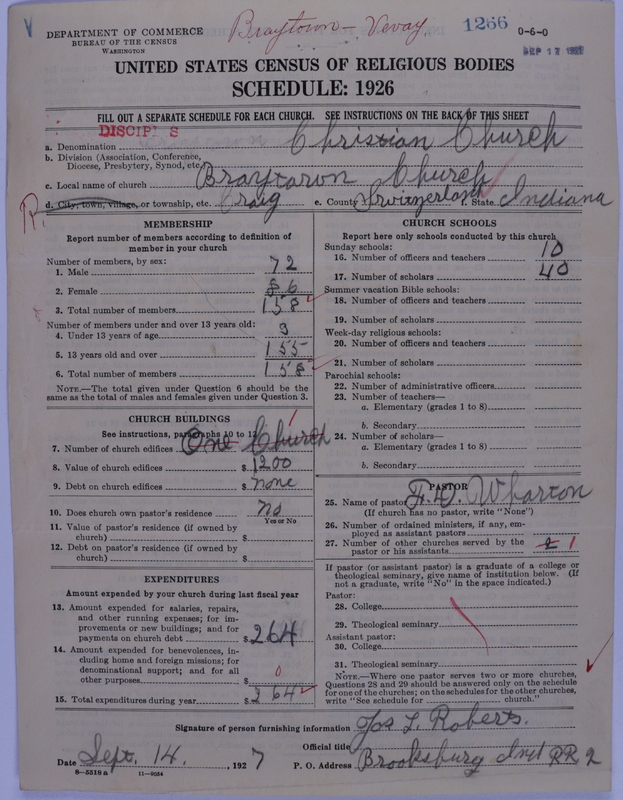 DEPARTMENT OF COMMERCE
BUREAU OF THE CENSUS
WASHINGTON
Braytown - Vevay
1266
0-6-0
SEP 17
UNITED STATES CENSUS OF RELIGIOUS BODIES
SCHEDULE: 1926
FILL OUT A SEPARATE SCHEDULE FOR EACH CHURCH. SEE INSTRUCTIONS ON THE BACK OF THIS SHEET
DISCIPLES
a. Denomination Christian Church
b. Division (Association, Conference,
Diocese, Presbytery, Synod, etc.)
c. Local name of church Braytown Church
R. d. City, town, village, or township, etc. Craig e. County Switzerland f. State Indiana
MEMBERSHIP
Report number of members according to definition of
member in your church
Number of members, by sex:
1. Male 72
2. Female 86
3. Total number of members 158
Number of members under and over 13 years old:
4. Under 13 years of age 3
5. 13 years old and over 155
6. Total number of members 158
NOTE.—The total given under Question 6 should be
the same as the total of males and females given under Question 3.
CHURCH BUILDINGS
See instructions, paragraphs 10 to 12
7. Number of church edifices One Church 1
8. Value of church edifices $ 1200
9. Debt on church edifices $ none
10. Does church own pastor's residence no
Yes or No
11. Value of pastor's residence (if owned by
church) $
12. Debt on pastor's residence (if owned by
church) $
EXPENDITURES
Amount expended by your church during last fiscal year
13. Amount expended for salaries, repairs,
and other running expenses; for im-
provements or new buildings; and for
payments on church debt $ 264
14. Amount expended for benevolences, in-
cluding home and foreign missions; for
denominational support; and for all
other purposes $ 0
15. Total expenditures during year $ 264
CHURCH SCHOOLS
Report here only schools conducted by this church
Sunday schools:
16. Number of officers and teachers 10
17. Number of scholars 40
Summer vacation Bible schools:
18. Number of officers and teachers
19. Number of scholars
Week-day religious schools:
20. Number of officers and teachers
21. Number of scholars
Parochial schools:
22. Number of administrative officers
23. Number of teachers—
a. Elementary (grades 1 to 8)
b. Secondary
24. Number of scholars—
a. Elementary (grades 1 to 8)
b. Secondary
PASTOR
25. Name of pastor Wharton
(If church has no pastor, write "None")
26. Number of ordained ministers, if any, em-
ployed as assistant pastors
27. Number of other churches served by the
pastor or his assistants 2 1
If pastor (or assistant pastor) is a graduate of a college or
theological seminary, give name of institution below. (If
not a graduate, write "No" in the space indicated.)
Pastor:
28. College
29. Theological seminary
Assistant pastor:
30. College
31. Theological seminary
NOTE.—Where one pastor serves two or more churches,
Questions 28 and 29 should be answered only on the schedule
for one of the churches; on the schedules for the other churches,
write "See schedule for church."
Signature of person furnishing information Jos L. Roberts.
Official title
Date Sept. 14, 1927 P. O. Address Brooksburg Ind RR 2
8—5518 a 11—9054